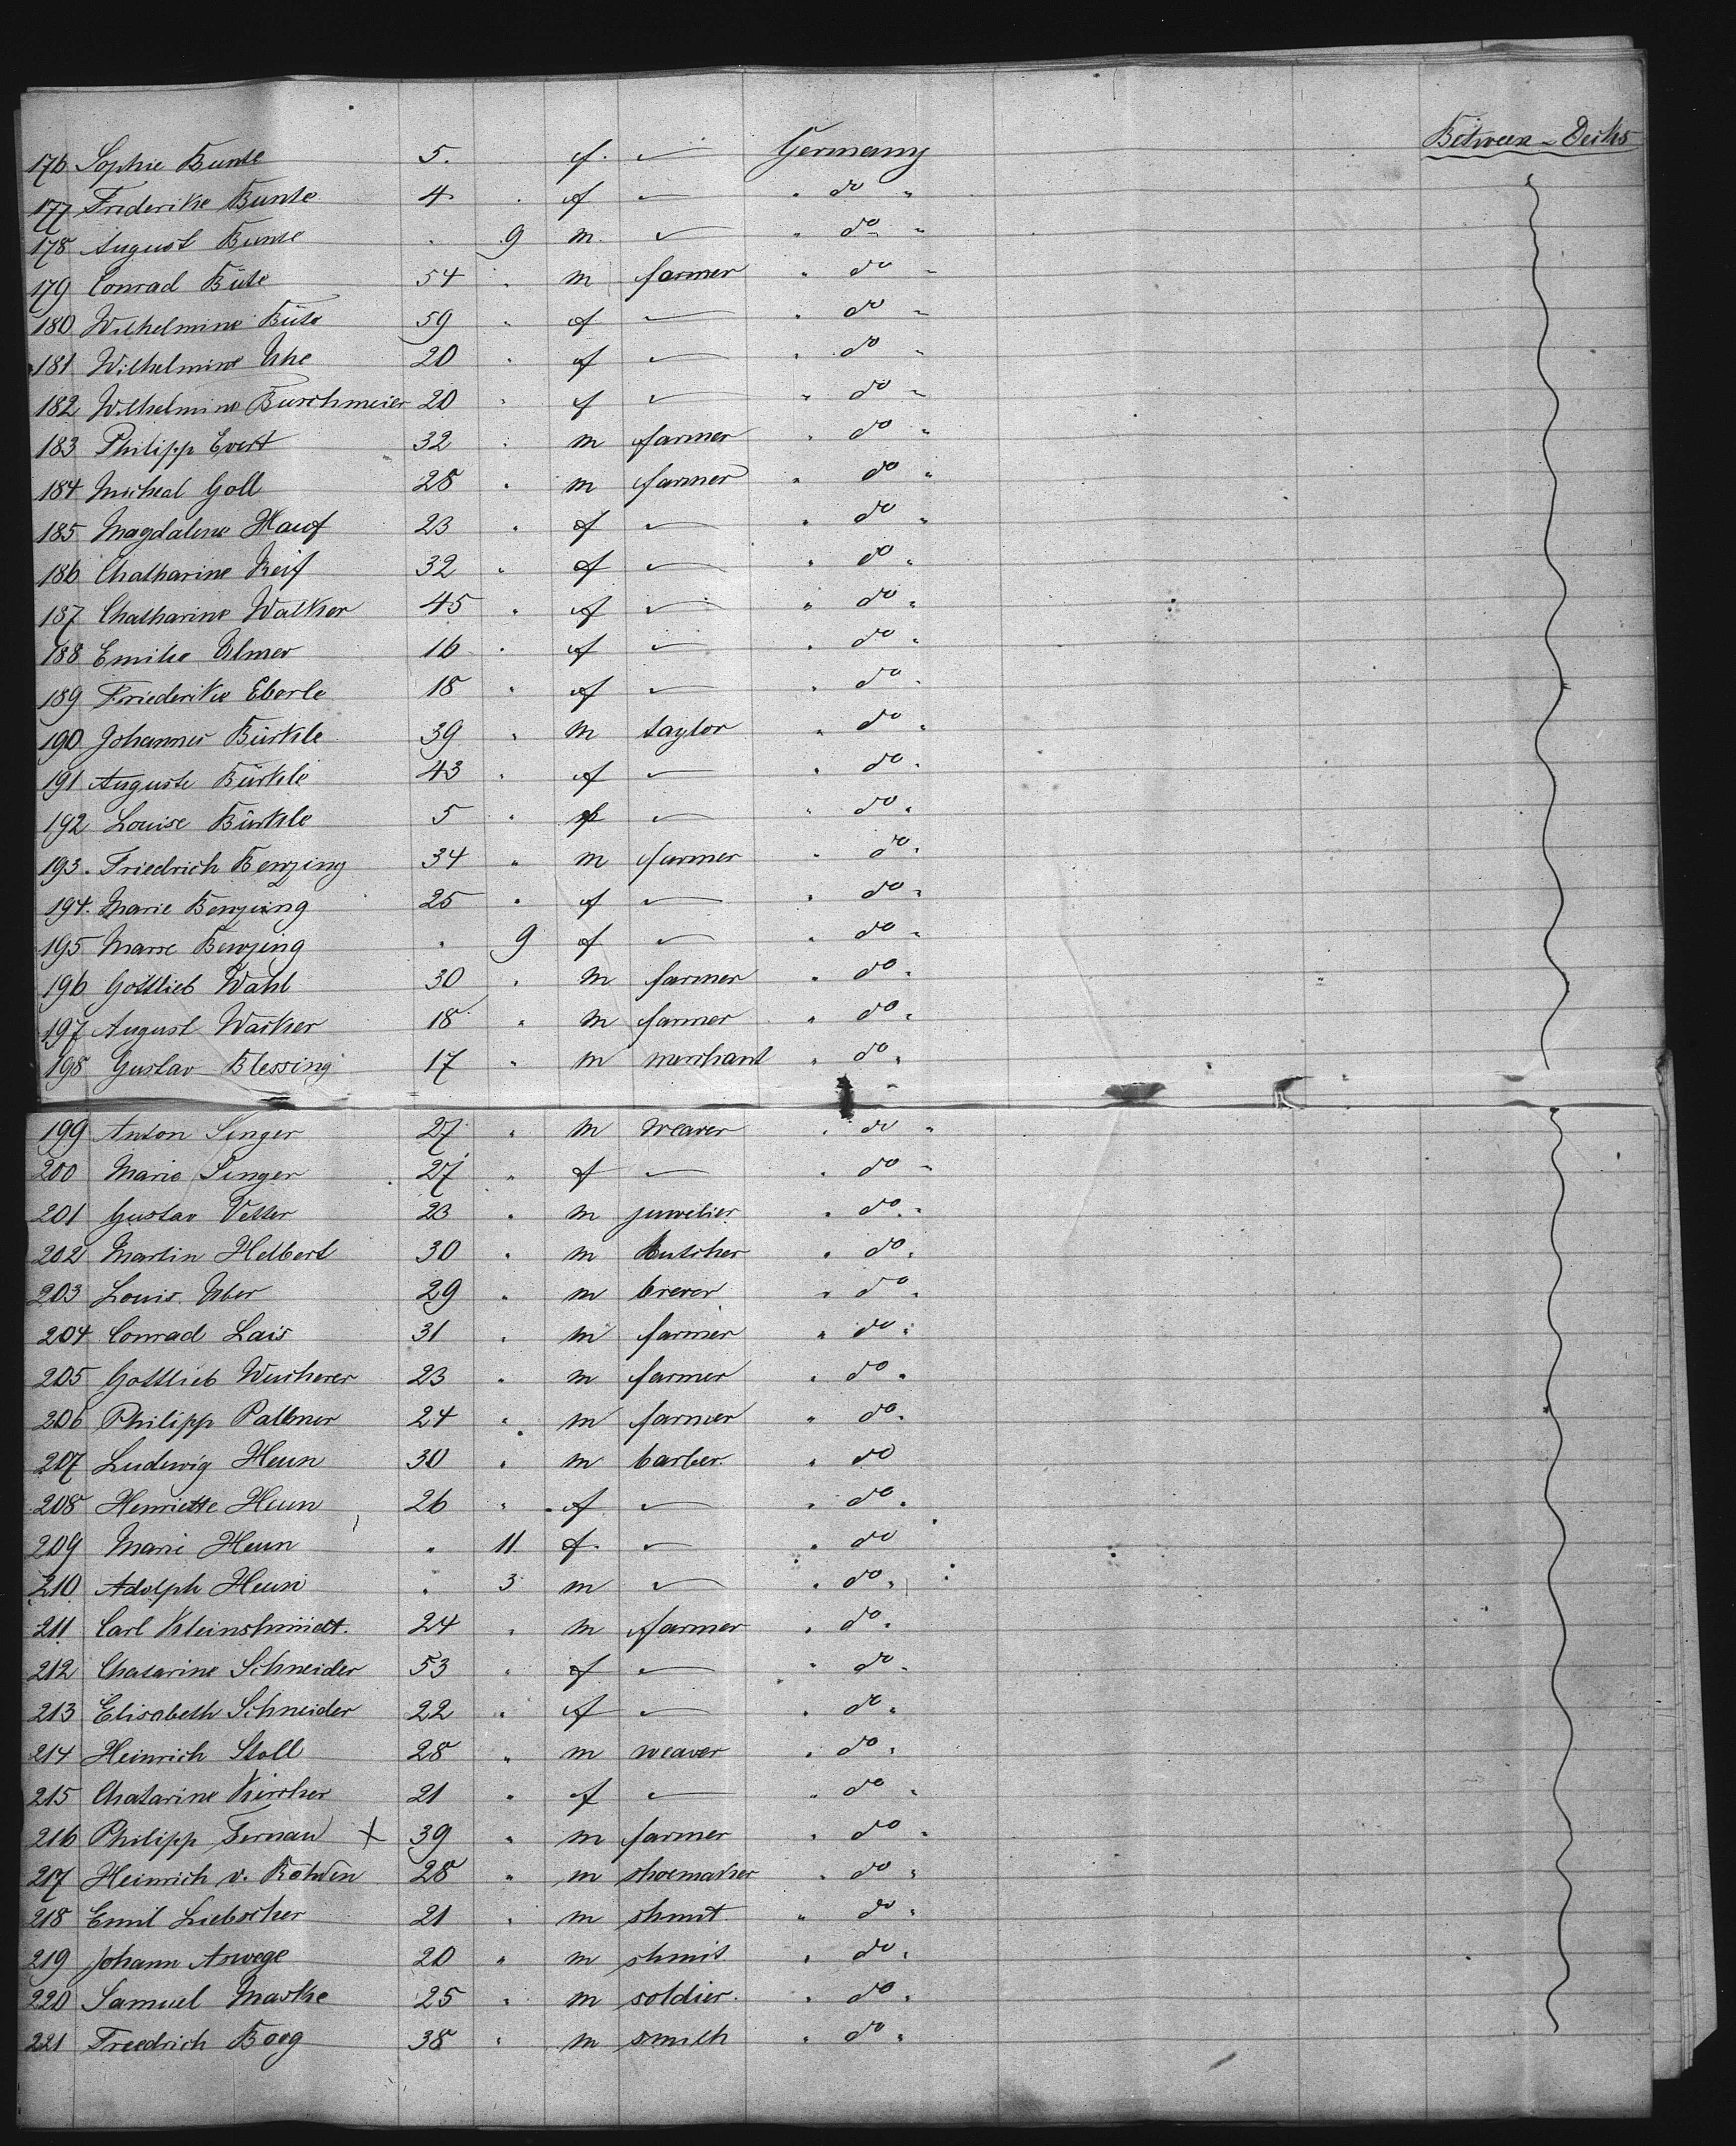 Between-Decks
176 Sophie Bunte 5. f. — Germany
177 Frederike Bunte 4 . f — " do "
178 August Bunte . 9 m. — " do "
179 Conrad Büte 54 " m farmer " do "
180 Wilhelmine Büte 59 " f — " do "
181 Wilhelmine Uhe 20 " f — " do "
182 Wilhelmine Burchmeier 20 " f — " do "
183 Philipp Evert 32 " m farmer " do "
184 Micheal Goll 28 " m farmer " do "
185 Magdalene Hauf 23 " f — " do "
186 Chatharine Reif 32 " f — " do "
187 Chatharine Walker 45 " f — " do "
188 Emilie Ulmer 16 " f — " do "
189 Friederike Eberle 18 " f — " do "
190 Johannes Bürkle 39 " m taylor " do "
191 Auguste Bürkle 43 " f — " do "
192 Louise Bürkle 5 " f — " do "
193. Friedrich Benzing 34 " m farmer " do "
194. Marie Benzing 25 " f — " do "
195 Marie Benzing " 9 f — " do "
196 Gottlieb Wahl 30 " m farmer " do "
197 August Walker 18 " m farmer " do "
198 Gustav Blessing 17 " m merchant " do "
199 Anton Singer 27 " m weaver " do "
200 Marie Singer 27 " f — " do "
201 Gustav Vetter 23 " m juwelier " do "
202 Martin Helbert 30 " m butcher " do "
203 Louis Uber 29 " m brever " do "
204 Conrad Lais 31 " m farmer " do "
205 Gottlieb Wucherer 23 " m farmer " do "
206 Philipp Pallmer 24 " m farmer " do "
207 Ludewig Heun 30 " m barber. " do
208 Henriette Heun 26 " f — " do "
209 Marie Heun " 11 f. — " do
210 Adolph Heun " 3 m — " do "
211 Carl Kleinshmidt. 24 " m farmer " do "
212 Chatarine Schneider 53 " f — " do "
213 Elisabeth Schneider 22 " f — " do "
214 Heinrich Stoll 28 " m weaver " do "
215 Chatarine Kircher 21 " f — " do "
216 Philipp Fernau X 39 " m farmer " do "
217 Heinrich v. Rohden 28 " m shoemaker " do "
218 Emil Liebscher 21 " m shmit " do "
219 Johann Aswege 20 " m shmit " do "
220 Samuel Maske 25 " m soldier. " do "
221 Freedrich Boeg 38 " m smith " do "